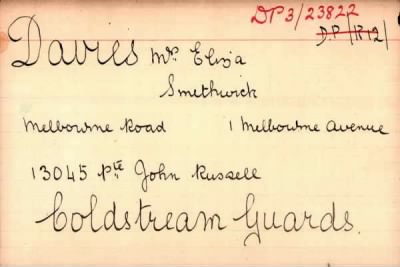 DP3/23822
D.P/1812/
Davies Mrs Eliza
Smethwick
Melbourne Road 1 Melbourne Avenue
13045 Pte John Russell
Coldstream Guards.